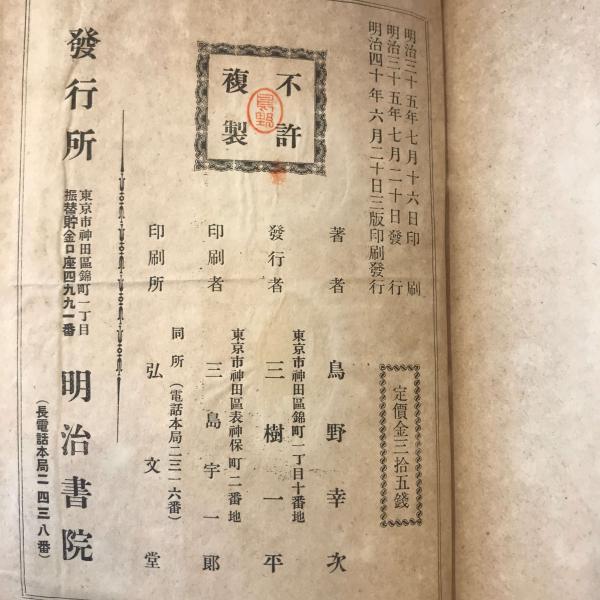 明治三十五年七月十六日印刷
明治三十五年七月二十日發行
明治四十年六月二十日三版印刷發行
定價金三拾五錢
不許
複製
著者 鳥野幸次
東京市神田區錦町一丁目十番地
發行者 三樹一平
東京市神田區表神保町二番地
印刷者 三島宇一郎
同所（電話本局二三一六番）
印刷所 弘文堂
發行所 明治書院
東京市神田區錦町一丁目
振替貯金口座四九九一番
（長電話本局二四三八番）